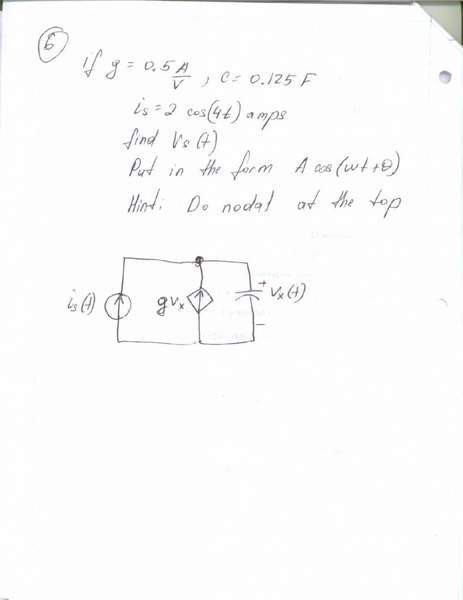 6
if g = 0.5 A/V , C = 0.125 F
is = 2 cos(4t) amps
find Vs (t)
Put in the form A cos (wt + θ)
Hint: Do nodal at the top
is (t)
gvx
+ Vx(t)
−